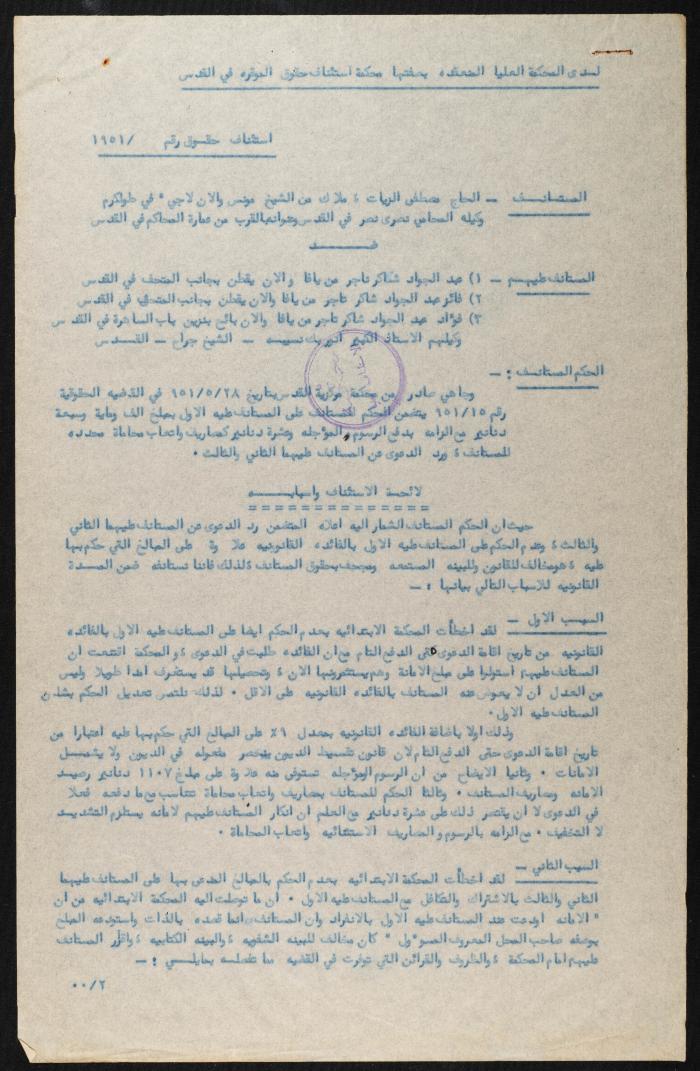 لدى المحكمة العليا المنعقده بصفتها محكمة استئناف حقوق الموقره في القدس
استئناف حقوق رقم /١٩٥١
المستانف – الحاج مصطفى الزيات ، ملاك من الشيخ مونس والان لاجيء في طولكرم
وكيله المحامي نصري نصر في القدس وعنوانه بالقرب من عمارة المحاكم في القدس
ضد
المستانف عليهم – ١) عبد الجواد شاكر تاجر من يافا والان يقطن بجانب المتحف في القدس
٢) فائز عبد الجواد شاكر تاجر من يافا والان يقطن بجانب المتحف في القدس
٣) فؤاد عبد الجواد شاكر تاجر من يافا والان بائع بنزين باب الساهرة في القدس
وكيلهم الاستاذ الكبير انور بك نسيبه – الشيخ جراح – القدس
الحكم المستانف : –
وجاهي صادر من محكمة مركزية القدس بتاريخ ٩٥١/٥/٢٨ في القضيه الحقوقية
رقم ٩٥١/١٥ يتضمن الحكم للمستانف على المستانف عليه الاول بمبلغ الف وماية وسبعة
دنانير مع الزامه بدفع الرسوم المؤجله وعشرة دنانير كمصاريف واتعاب محاماة محدده
للمستانف ، ورد الدعوى عن المستانف عليهما الثاني والثالث .
لائحة الاستئناف واسبابه
حيث ان الحكم المستانف المشار اليه اعلاه المتضمن رد الدعوى عن المستانف عليهما الثاني
والثالث ، وعدم الحكم على المستانف عليه الاول بالفائده القانونيه علاوة على المبالغ التي حكم بها
عليه ، هو مخالف للقانون وللبينه المستمعه ومجحف بحقوق المستانف ، لذلك فاننا نستانفه ضمن المدة
القانونيه للاسباب التالي بيانها : –
السبب الاول – لقد اخطأت المحكمة الابتدائيه بعدم الحكم ايضا على المستانف عليه الاول بالفائده
القانونيه من تاريخ اقامة الدعوى حتى الدفع التام مع ان الفائده طلبت في الدعوى ، و المحكمة اقتنعت ان
المستانف عليهم استولوا على مبلغ الامانة وهم يستثمرونها الان ، وتحصيلها قد يستغرق امدا طويلا وليس
من العدل ان لا يعوض عنه المستانف بالفائده القانونيه على الاقل . لذلك نلتمس تعديل الحكم بشان
المستانف عليه الاول .
وذلك اولا باضافة الفائده القانونيه بمعدل ٩٪ على المبالغ التي حكم بها عليه اعتبارا من
تاريخ اقامة الدعوى حتى الدفع التام لان قانون تقسيط الديون ينحصر مفعوله في الديون ولا يشمل
الامانات . وثانيا الايضاح من ان الرسوم المؤجله تستوفى منه علاوة على مبلغ ١١٠٧ دنانير رصيد
الامانه ومصاريف المستانف . وثالثا الحكم للمستانف بمصاريف واتعاب محاماة تتناسب مع ما دفعه فعلا
في الدعوى لا ان يقتصر ذلك على عشرة دنانير مع العلم ان انكار المستانف عليهم لامانه يستلزم التشديد
لا التخفيف . مع الزامه بالرسوم و المصاريف الاستئنافيه واتعاب المحاماة .
السبب الثاني –
لقد اخطأت المحكمة الابتدائيه بعدم الحكم بالمبالغ المدعى بها على المستانف عليهما
الثاني والثالث بالاشتراك والتكافل مع المستانف عليه الاول . ان ما توصلت اليه المحكمة الابتدائيه من ان
" الامانه اودعت عند المستانف عليه الاول بالانفراد وان المستانف انما قصده بالذات واستودعه المبلغ
بوصفه صاحب المحل المعروف المسؤول " كان مخالف للبينه الشفويه ، والبينه الكتابيه ، واقرار المستانف
عليهم امام المحكمة ، والظروف والقرائن التي توفرت في القضيه مما نفصله بمايلي : –
٠٠/٢